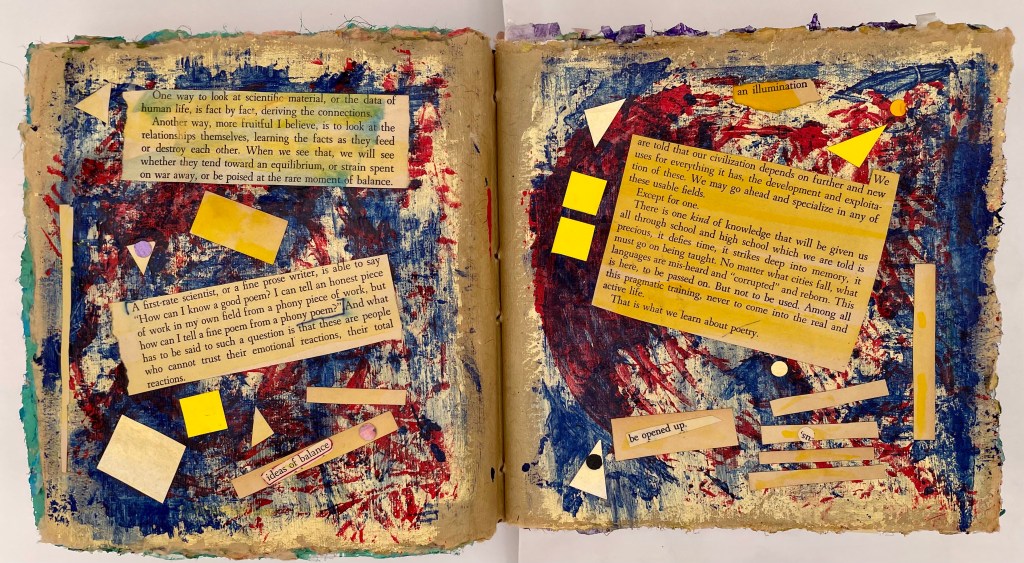 One way to look at scientific material, or the data of
human life, is fact by fact, deriving the connections.
Another way, more fruitful I believe, is to look at the
relationships themselves, learning the facts as they feed
or destroy each other. When we see that, we will see
whether they tend toward an equilibrium, or strain spent
on war away, or be poised at the rare moment of balance.
A first-rate scientist, or a fine prose writer, is able to say
"How can I know a good poem? I can tell an honest piece
of work in my own field from a phony piece of work, but
how can I tell a fine poem from a phony poem?" And what
has to be said to such a question is that these are people
who cannot trust their emotional reactions, their total
reactions.
ideas of balance
an illumination
We
are told that our civilization depends on further and new
uses for everything it has, the development and exploita-
tion of these. We may go ahead and specialize in any of
these usable fields.
Except for one.
There is one kind of knowledge that will be given us
all through school and high school which we are told is
precious, it defies time, it strikes deep into memory, it
must go on being taught. No matter what cities fall, what
languages are mis-heard and "corrupted" and reborn. This
is here, to be passed on. But not to be used. Among all
this pragmatic training, never to come into the real and
active life.
That is what we learn about poetry.
be opened up.
sus